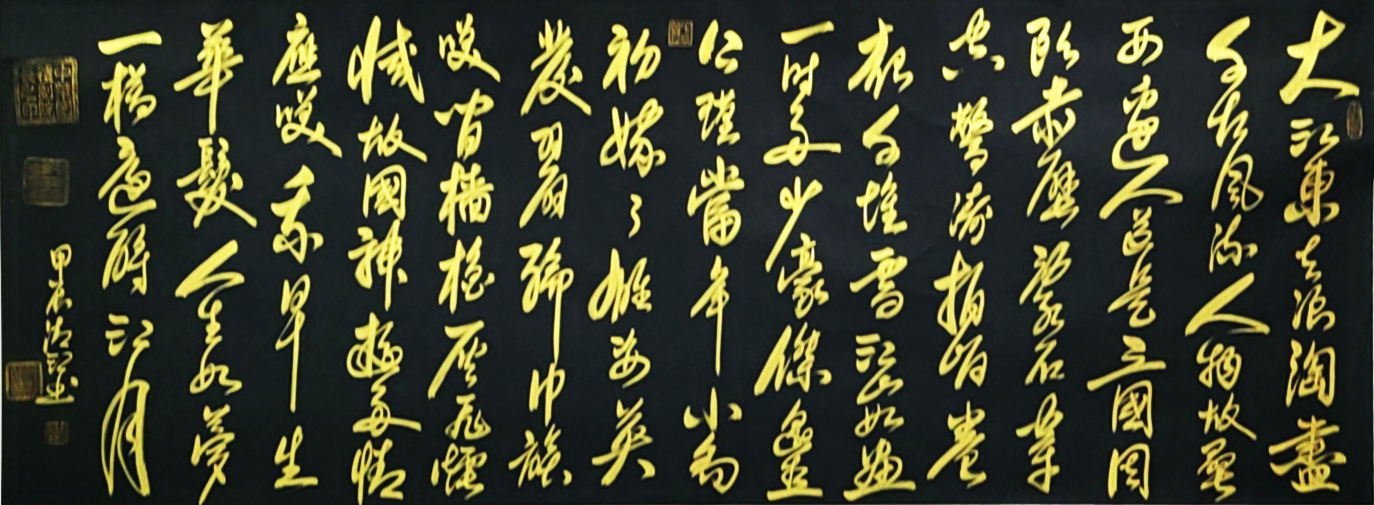 大江東去浪淘盡
千古風流人物故壘
西邊人道是三國周
郎赤壁亂石穿
空驚濤拍岸卷
起千堆雪江山如畫
一時多少豪傑遙想
公瑾當年小喬
初嫁了雄姿英
發羽扇綸巾談
笑間檣櫓灰飛煙
滅故國神遊多情
應笑我早生
華髮人生如夢
一樽還酹江月
甲午